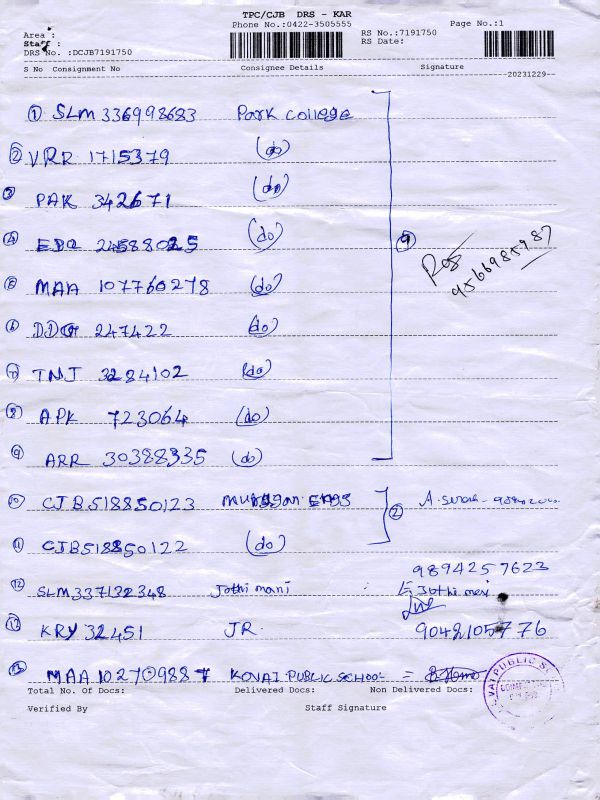 TPC/CJB DRS - KAR
Phone No.:0422-3505555
Page No.:1
Area :
Staff :
DRS No. :DCJB7191750
RS No.:7191750
RS Date:
S No Consignment No Consignee Details Signature
20231229
① SLM 336998683 Park College
② VRR 1715379 (do)
③ PAK 342671 (do)
④ 24588025 (do)
⑤ MAA 107760278 (do)
⑥ DDG 247422 (do)
⑦ TNJ 3284102 (do)
⑧ APK 723064 (do)
⑨ ARR 30388335 (do)
⑨
9566985987
⑩ CJB518850123 Murugan Engg
② A.
⑪ CJB518850122 (do)
9894257623
⑫ SLM337132348 Jothi mani : Jothi mani
⑬ KRY 32451 JR. 9042105776
MAA 102709887 KOVAI PUBLIC SCHOOL =
Total No. Of Docs: Delivered Docs: Non Delivered Docs:
Verified By Staff Signature
PUBLIC